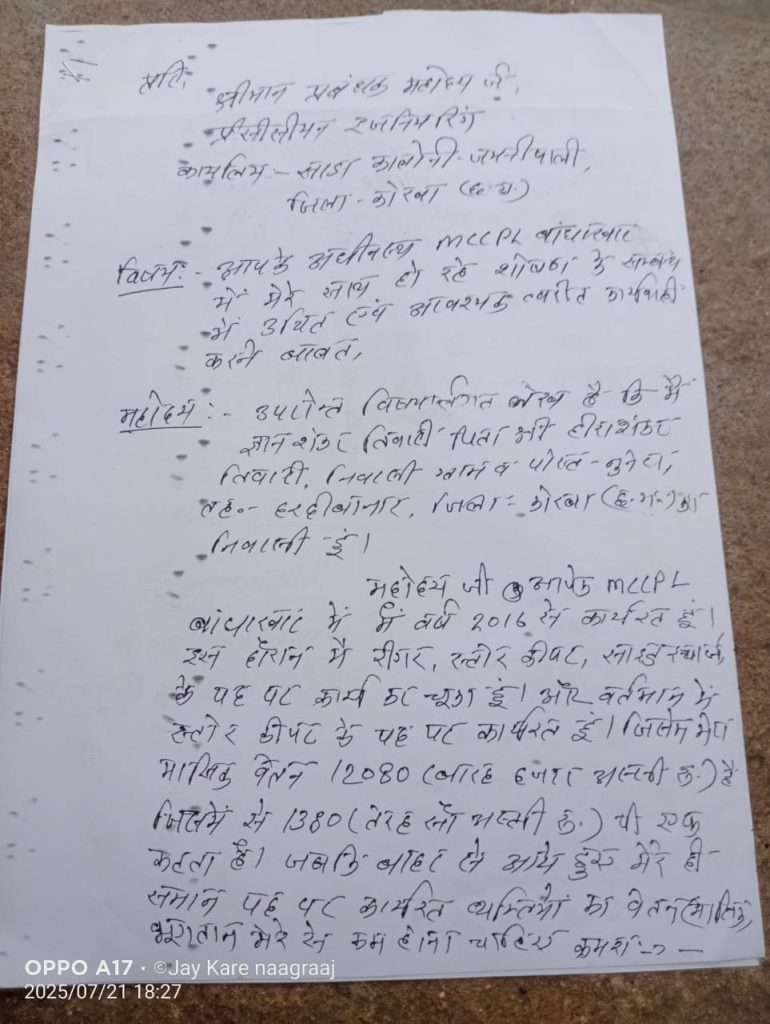 प्रति,
श्रीमान प्रबंधक महोदय जी,
प्रीसीसीयन इंजनियरिंग
कार्यालय:- साडा कालोनी-जमनीपाली,
जिला - कोरबा (छ.ग.)
विषय:- आपके अधीनस्थ MCCPL बांधाखार
में मेरे साथ हो रहे शोषण के सम्बंध
में उचित एवं आवश्यक त्वरीत कार्यवाही
करने बाबत,
महोदय:- उपरोक्त विषयान्तर्गत लेख है कि मैं
ज्ञान शंकर तिवारी पिता श्री हीराशंकर
तिवारी, निवासी ग्राम व पोस्ट- नुनेरा,
तह.- हरदीबाजार, जिला - कोरबा (छ.ग.) का
निवासी हूं।
महोदय जी आपके MCCPL
बांधाखार में मैं वर्ष 2016 से कार्यरत हूं।
इस दौरान मैं रीगर, स्टोर कीपर, साइड इंचार्ज,
के पद पर कार्य कर चूका हूं। और वर्तमान में
स्टोर कीपर के पद पर कार्यरत हूं। जिसमें मेरा
मासिक वेतन 12080 (बारह हजार अस्सी रु.) है
जिसमें से 1380 (तेरह सौ अस्सी रु.) पी एफ
कटता है। जबकि बाहर से आये हुए मेरे ही
समान पद पर कार्यरत व्यक्तियों का वेतन (मासिक)
भूगतान मेरे से कम होना चाहिए क्रमशः-> -
OPPO A17 · ©Jay Kare naagraaj
2025/07/21 18:27